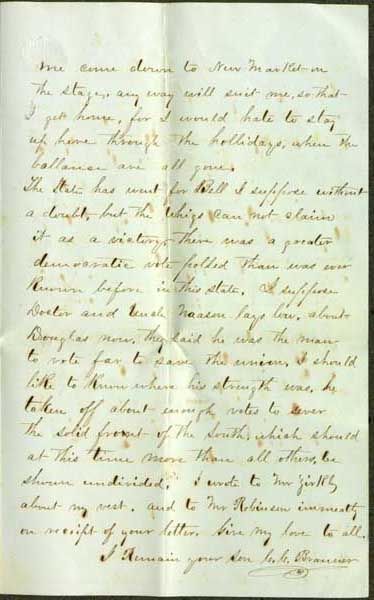 me come down to New Market on
the stage, any way will suit me, so that
I get home, for I would hate to stay
up here through the hollidays, when the
ballance are all gone.
The State has went for Bell I suppose without
a doubt, but the Whigs can not claim
it as a victory, there was a greater
democratic vote polded than was ever
known before in this state. I suppose
Doctor and Uncle Naason lays low about
Douglas now, they said he was the man
to vote far to save the union. I should
like to know where his strength was. he
taken off about enough votes to sever
the solid front of the South, which should
at this time more than all others, be
shown undivided. I wrote to Mr Zirkly
about my vest. and to Mr Robinson
on receipt of your letter. Give my love to all.
I Remain your son C. C. Brauner